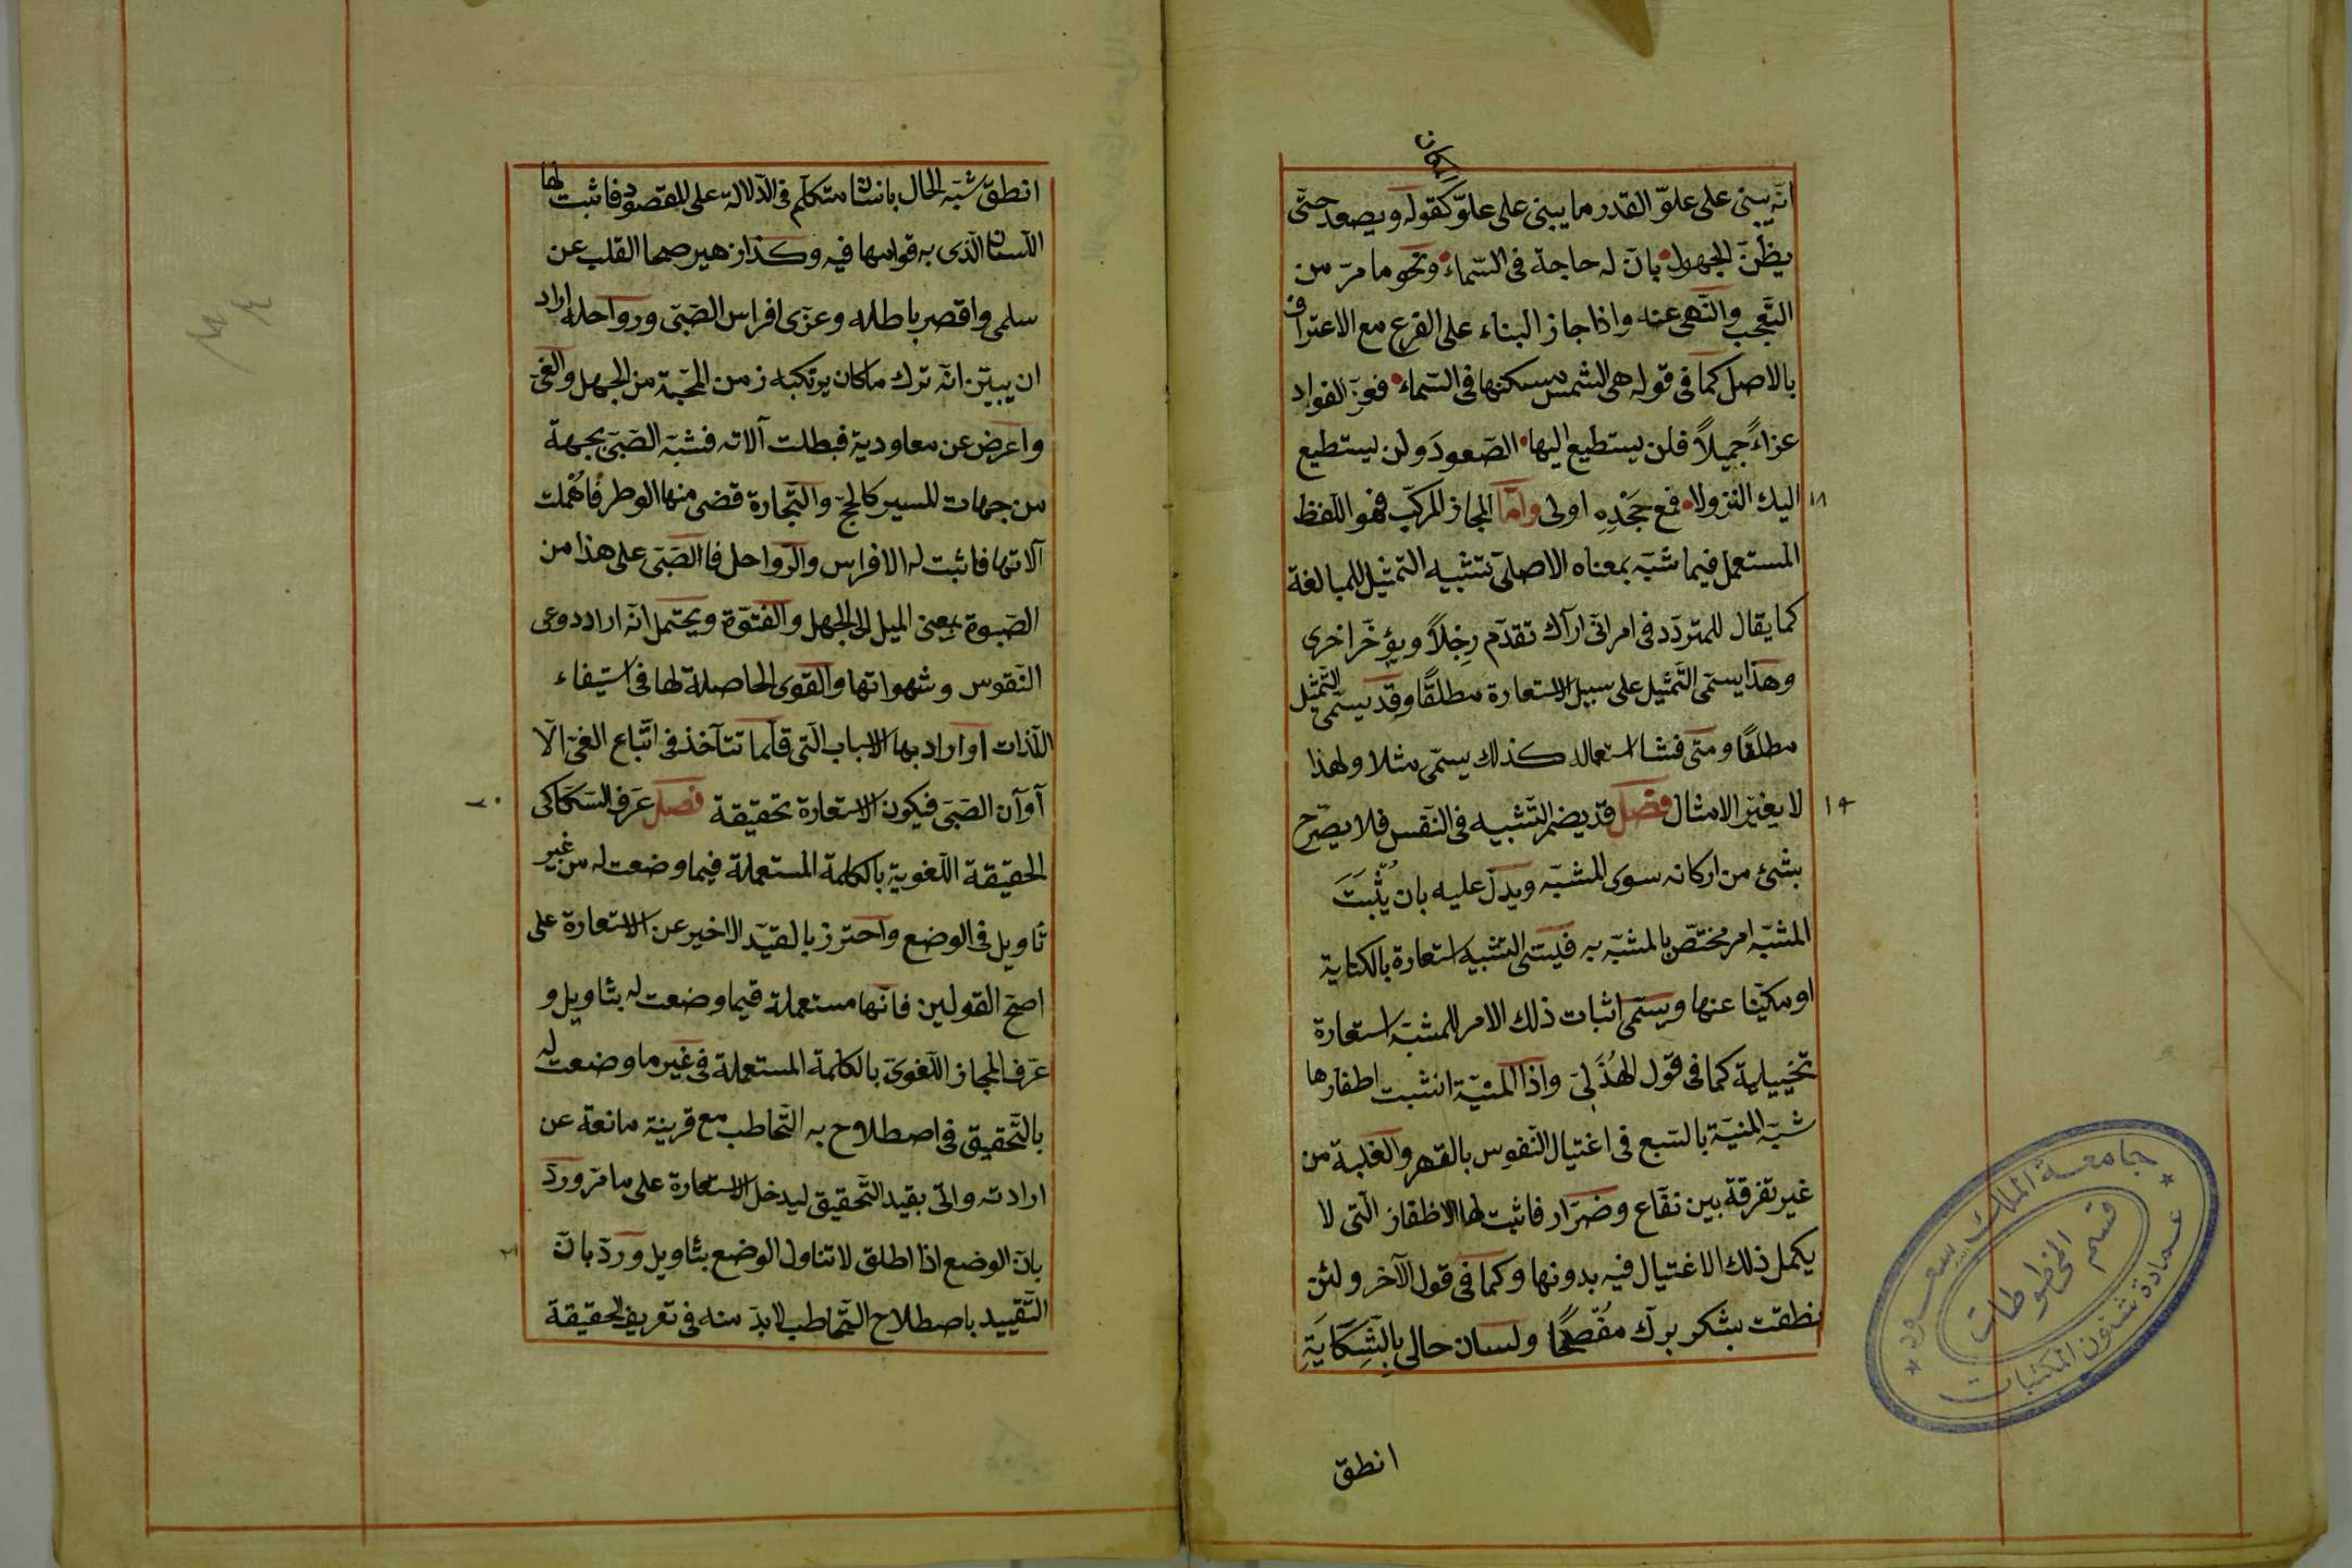 المكان
انّه يبنى على علوّ القدر ما يبنى على علوّ كقوله ويصعد حتّى
يظنّ الجهول بانّ له حاجة فى السّماء ونحو ما مرّ من
التّعجّب والنّهى عنه واذا جاز البناء على الفرع مع الاعتراف
بالاصل كما فى قوله هى الشمس مسكنها فى السّماء فعزّ الفواد
عزاءً جميلاً فلن يستطيع اليها الصّعودَ ولن يستطيع
١٨ اليك النزولا فمع جَحْدِهِ اولى وامّا المجاز المركّب فهو اللّفظ
المستعمل فيما شبّه بمعناه الاصلىّ تشبيه التمثيل للمبالغة
كما يقال للمتردّد فى امر انّى اراك تقدّم رِجْلاً ويؤخّر اخرى
وهذا يسمّى التّمثيل على سبيل الاستعارة مطلقًا وقد يسمّى التّمثيل
مطلقًا ومتى فشا استعماله كذلك يسمّى مثلا ولهذا
١٩ لا يغيّر الامثال فصل قد يضمر التّشبيه فى النّفس فلا يصرّح
بشئ من اركانه سوى المشبّه ويدلّ عليه بان يُثْبَتَ
المشبّه امر مختصّ بالمشبّه به فيسمّى التشبيه استعارة بالكناية
او مكنيّا عنها ويسمّى اثبات ذلك الامر للمشبّه استعارة
تخييلية كما فى قول الهُذَلِىّ واذا المنيّة انشبت اظفارها
شبّه المنيّة بالسّبع فى اغتيال النّفوس بالقهر والغلبة من
غير تفرقة بين نفّاع وضرّار فاثبت لها الاظفار الّتى لا
يكمل ذلك الاغتيال فيه بدونها وكما فى قول الآخر ولئن
نطقت بشكر برّك مُفْصِحًا ولسان حالى بِالشِّكَايَةِ
انطق
جامعة الملك سعود
قسم المخطوطات
عمادة شئون المكتبات
انطق شبّه الحال بانسان متكلّم فى الدّلالة على المقصود فاثبت لها
اللّسان الّذى به قوامها فيه وكذا زهير صحا القلب عن
سلمى واقصر باطله وعزى افراس الصّبى ورواحله اراد
ان يبيّن انّه ترك ما كان يرتكبه زمن المحبّة من الجهل والغىّ
واعرض عن معاودية فبطلت آلاته فشبّه الصّبىّ بجهة
من جهات المسير كالحجّ والتّجارة قضى منها الوطر فاُهْملت
آلاتها فاثبت له الافراس والرّواحل فالصّبى على هذا من
الصّبوة بمعنى الميل الى الجهل والفتوّة ويحتمل انّه اراد دوعى
النّفوس وشهواتها والقوى الحاصلة لها فى استيفاء
اللّذات او اراد بها الاسباب الّتى قلّما تتآخذ فى اتّباع الغىّ الّا
٢٠ آوآن الصّبى فيكون الاستعارة تحقيقة فصل عرّف السّكاكى
الحقيقة اللّغوية بالكلمة المستعملة فيما وضعت له من غير
تاويل فى الوضع واحترز بالقيّد الاخير عن الاستعارة على
اصحّ القولين فانّها مستعملة فيما وضعت له بتاويل و
عرّف المجاز اللّغوىّ بالكلمة المستعملة فى غير ما وضعت له
بالتّحقيق فى اصطلاح به التّخاطب مع قرينة مانعة عن
ارادته واتى بقيد التّحقيق ليدخل الاستعارة على ما مرّ وردّ
٢١ بانّ الوضع اذا اطلق لا تناول الوضع بتاويل وردّ بانّ
التّقييد باصطلاح التّخاطب لا بدّ منه فى تعريف الحقيقة